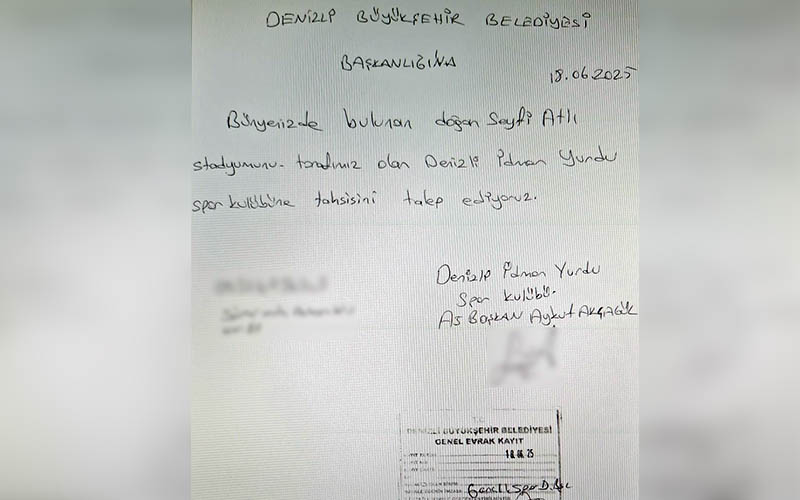 DENİZLİ BÜYÜKŞEHİR BELEDİYESİ
BAŞKANLIĞINA
18.06.2025
Bünyenizde bulunan doğan Seyfi Atlı
stadyumunu tarafımız olan Denizli İdman Yurdu
spor kulübüne tahsisini talep ediyoruz.
Denizli İdman Yurdu
Spor kulübü.
AS BAŞKAN Aykut
T.C.
DENİZLİ BÜYÜKŞEHİR BELEDİYESİ
GENEL EVRAK KAYIT
18.06.25
Gençlik Spor D. Bşk